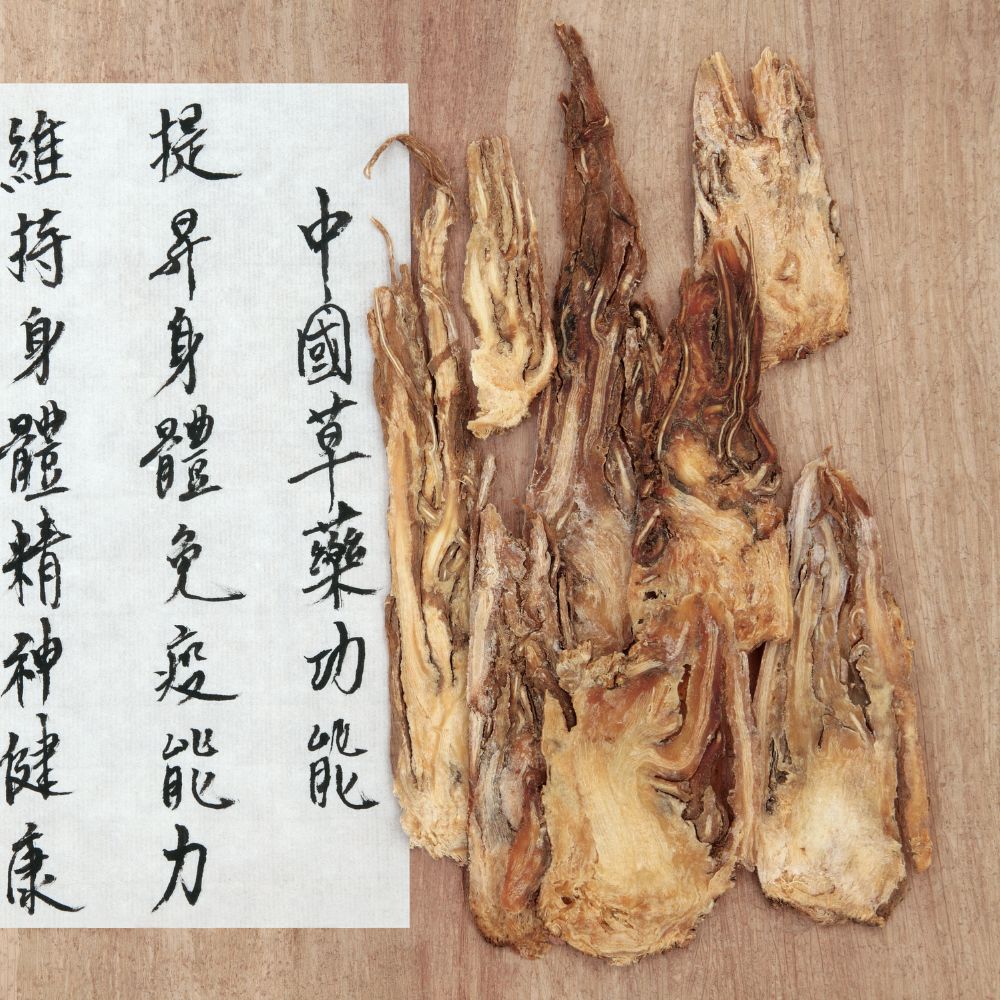 中國草藥功能
提昇身體免疫能力
維持身體精神健康